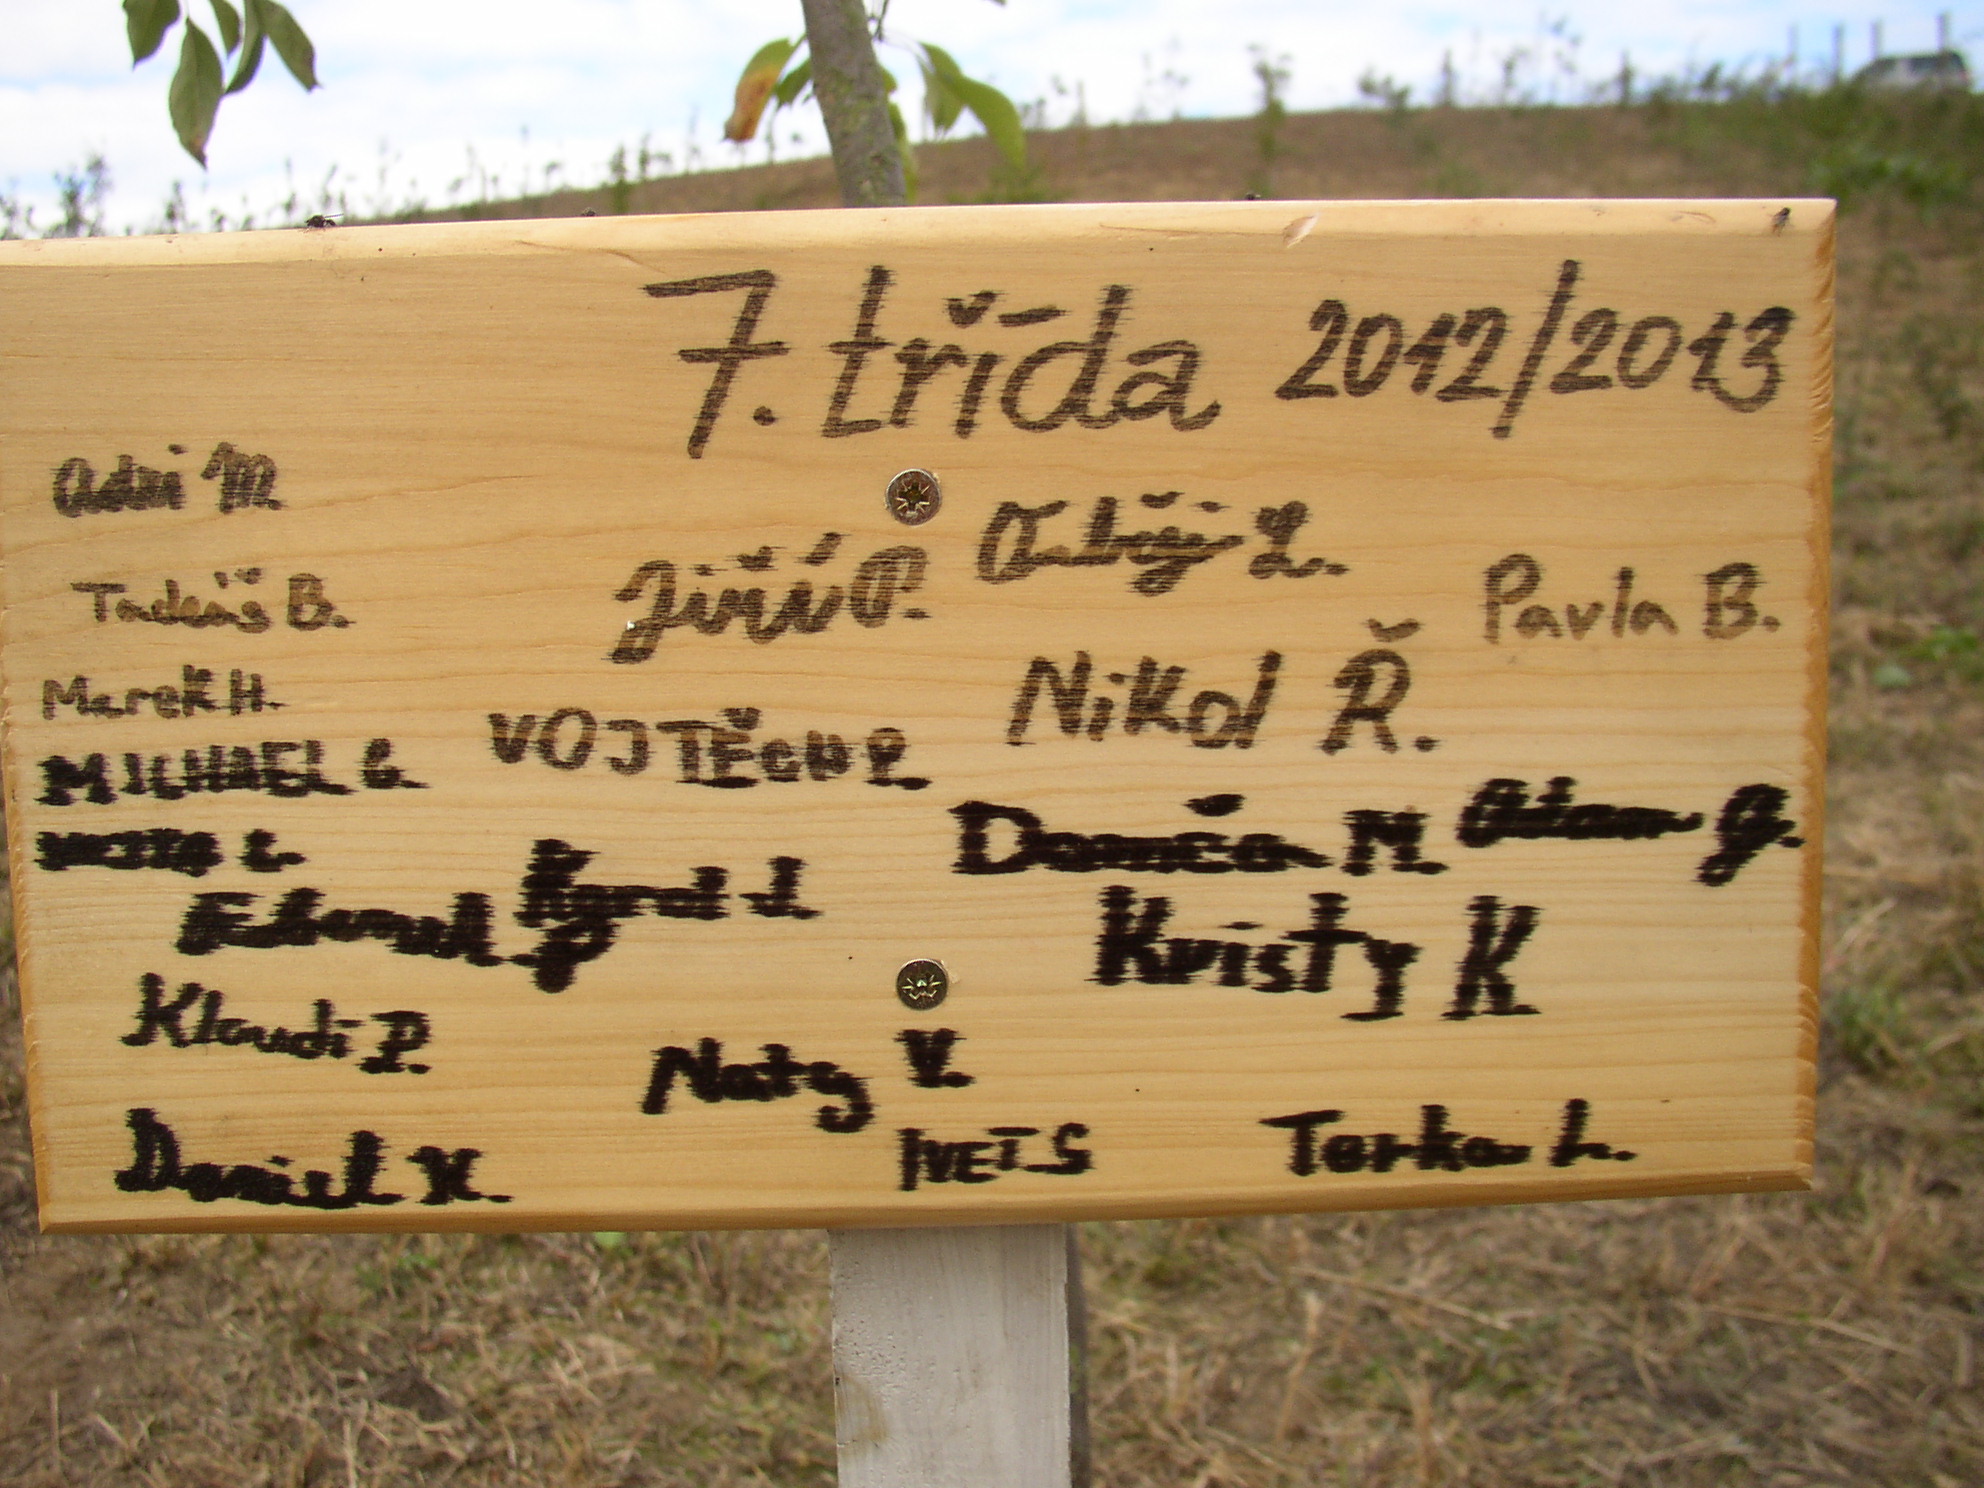 7. třída 2012/2013
Adri M.
Ondřej L.
Tadeáš B.
Jiří P.
Pavla B.
Marek H.
Nikol Ř.
MICHAEL G.
VOJTĚCH P.
Domča M.
Adam J.
L.
J.
Kristy K
Klaudi P.
Naty V.
Daniel K.
IVET S
Terka L.